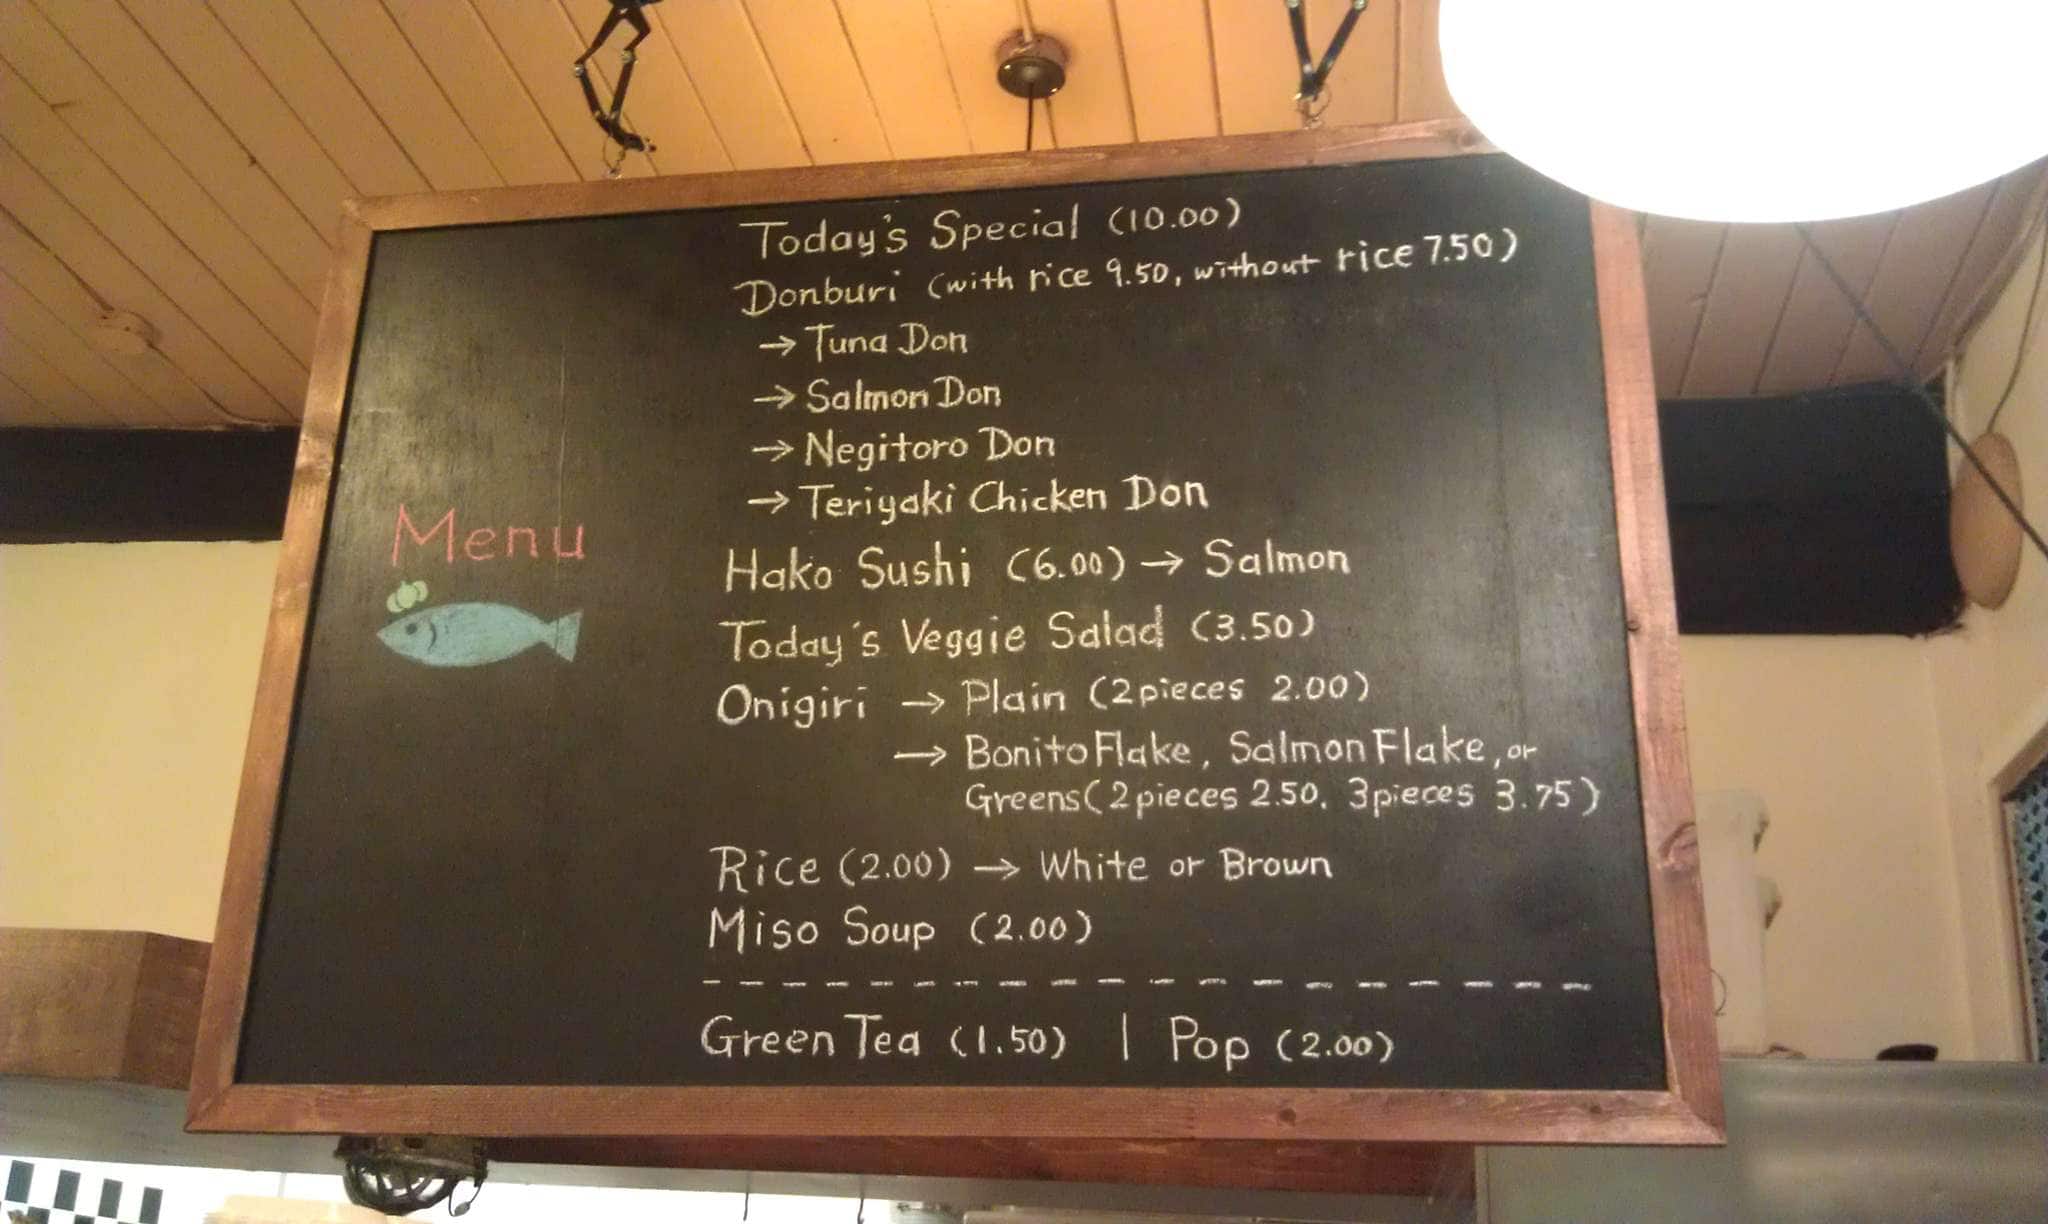 Today's Special (10.00)
Donburi (with rice 9.50, without rice 7.50)
→ Tuna Don
→ Salmon Don
→ Negitoro Don
→ Teriyaki Chicken Don
Menu
Hako Sushi (6.00) → Salmon
Today's Veggie Salad (3.50)
Onigiri → Plain (2 pieces 2.00)
→ Bonito Flake, Salmon Flake, or
Greens (2 pieces 2.50, 3 pieces 3.75)
Rice (2.00) → White or Brown
Miso Soup (2.00)
Green Tea (1.50) | Pop (2.00)